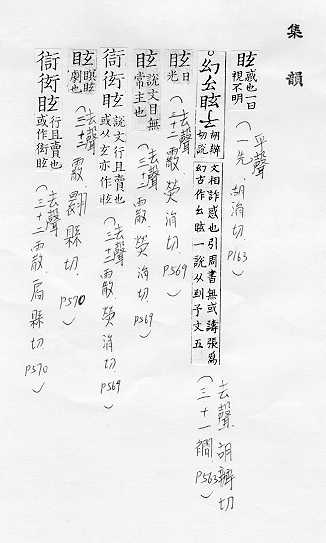 集韻
眩 惑也一曰視不明 (平聲 一先 胡涓切 P163)
幻 眩 胡辦切說文相詐惑也引周書無或譸張爲幻古作 眩一說从到予文五 (去聲 三十一襉 胡辦切 P563)
昡 日光 (去聲 三十二霰 熒涓切 P569)
眩 說文目無常主也 (去聲 三十二霰 熒涓切 P569)
衒眩 說文行且賣也或从玄亦作眩 (去聲 三十二霰 熒涓切 P569)
眩 瞑眩劇也 (去聲 三十二霰 翾縣切 P570)
衒眩 行且賣也或作衒眩 (去聲 三十二霰 扃縣切 P570)